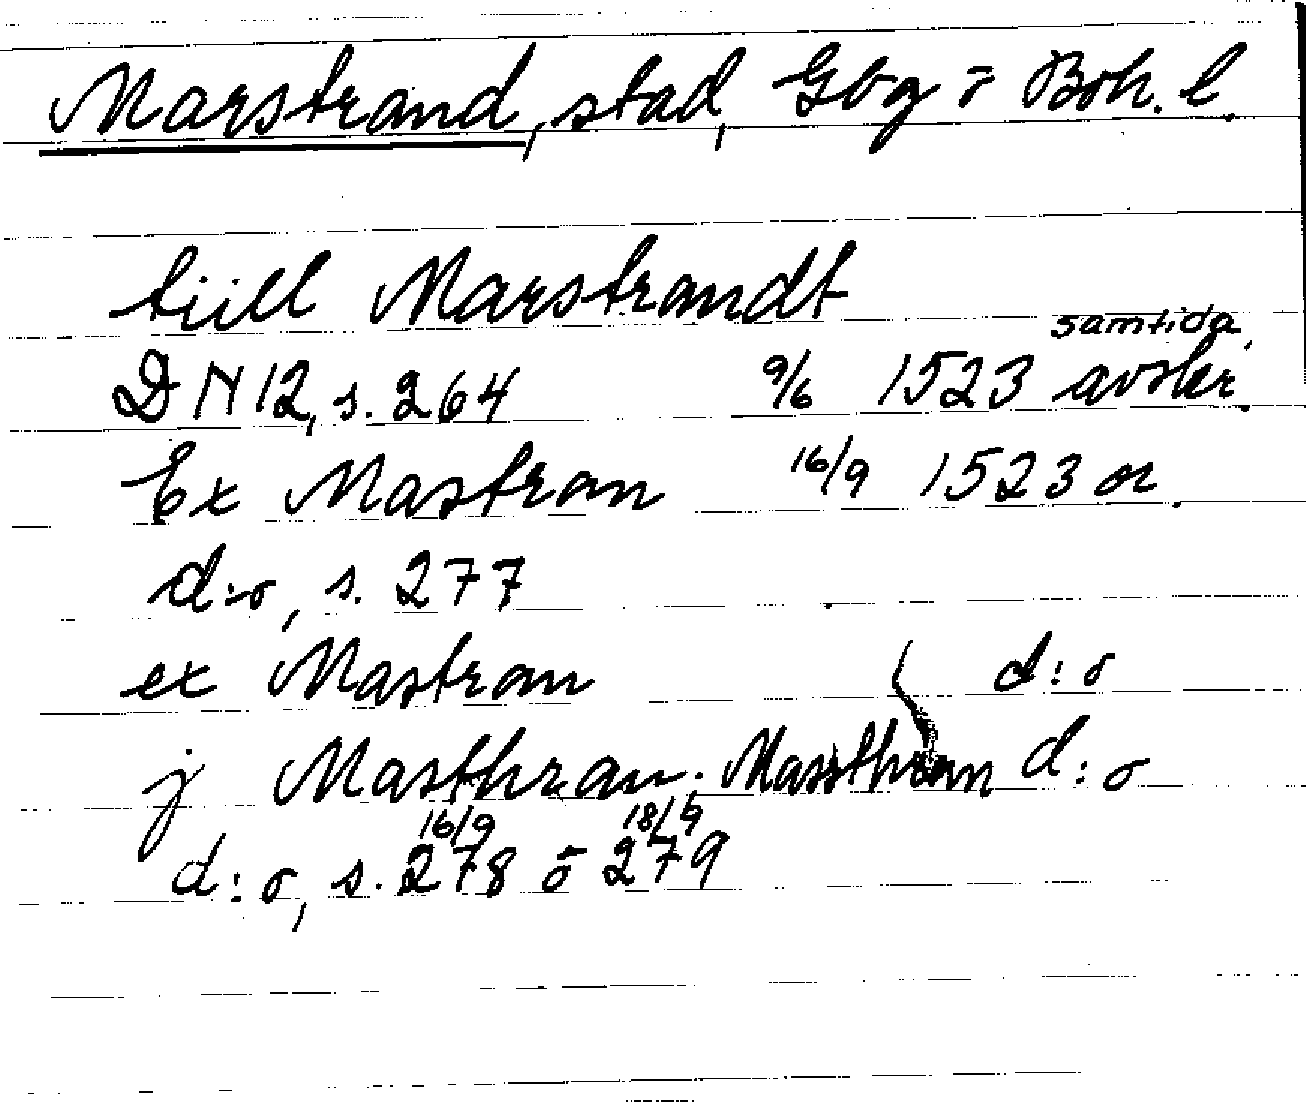 Marstrand, stad, Gbg o Boh. l.
tiill Marstrandt
samtida
DN 12, s. 264 9/6 1523 avskr.
Ex Mastran 16/9 1523 or.
d:o, s. 277
ex Mastran d:o
j Masthran. Massthran d:o
16/9 18/9
d:o, s. 278 o 279